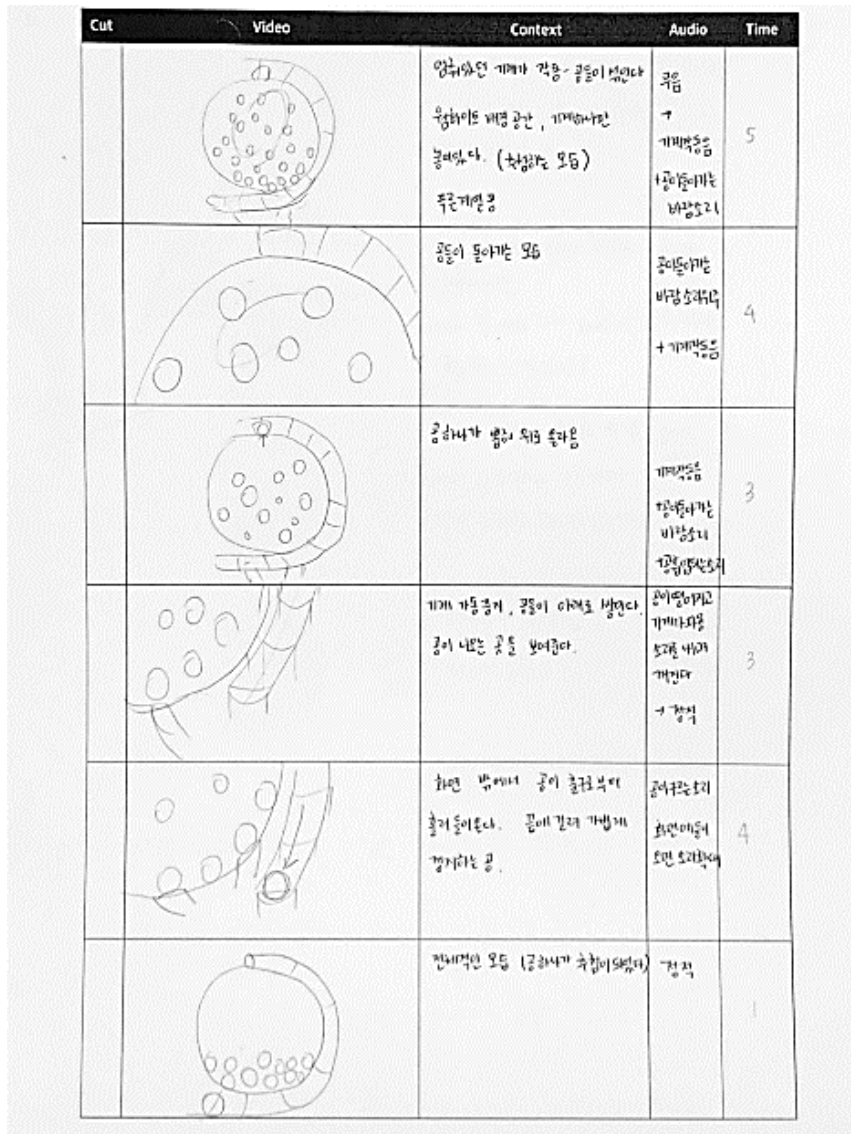 Cut Video Context Audio Time
멈춰있던 기계가 작동 - 공들이 섞인다
웜화이트 배경 공간, 기계하나만
놓여있다. (추첨하는 모습)
푸른계열 공
무음
→
기계작동음
+공이돌아가는
바람소리
5
공들이 돌아가는 모습
공이돌아가는
바람소리위주
+ 기계작동음
4
공하나가 뽑혀 위로 올라옴
기계작동음
+공이돌아가는
바람소리
3
기계 가동중지, 공들이 아래로 쌓인다.
공이 나오는 곳을 보여준다.
공이떨어지고
기계가
소리를 내며
꺼진다
→ 정적
3
화면 밖에서 공이 출구로부터
흘러 들어온다. 끝에 걸려 가볍게
공.
공이구르는소리
화면에들어
오면 소리확대
4
전체적인 모습 (공하나가 추첨이 되었다)
정적
1